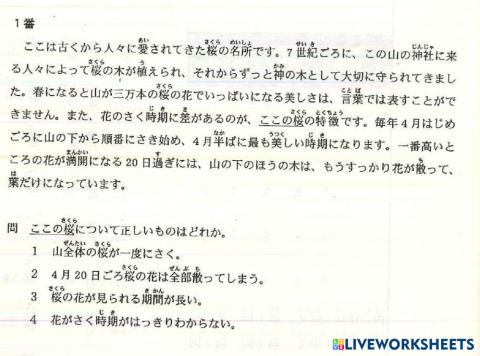 1番
ここは古くから人々に愛されてきた桜の名所です。7世紀ごろに、この山の神社に来
る人々によって桜の木が植えられ、それからずっと神の木として大切に守られてきまし
た。春になると山が三万本の桜の花でいっぱいになる美しさは、言葉では表すことがで
きません。また、花のさく時期に差があるのが、ここの桜の特徴です。毎年4月はじめ
ごろに山の下から順番にさき始め、4月半ばに最も美しい時期になります。一番高いと
ころの花が満開になる20日過ぎには、山の下のほうの木は、もうすっかり花が散って、
葉だけになっています。
問 ここの桜について正しいものはどれか。
1 山全体の桜が一度にさく。
2 4月20日ごろ桜の花は全部散ってしまう。
3 桜の花が見られる期間が長い。
4 花がさく時期がはっきりわからない。
LIVEWORKSHEETS